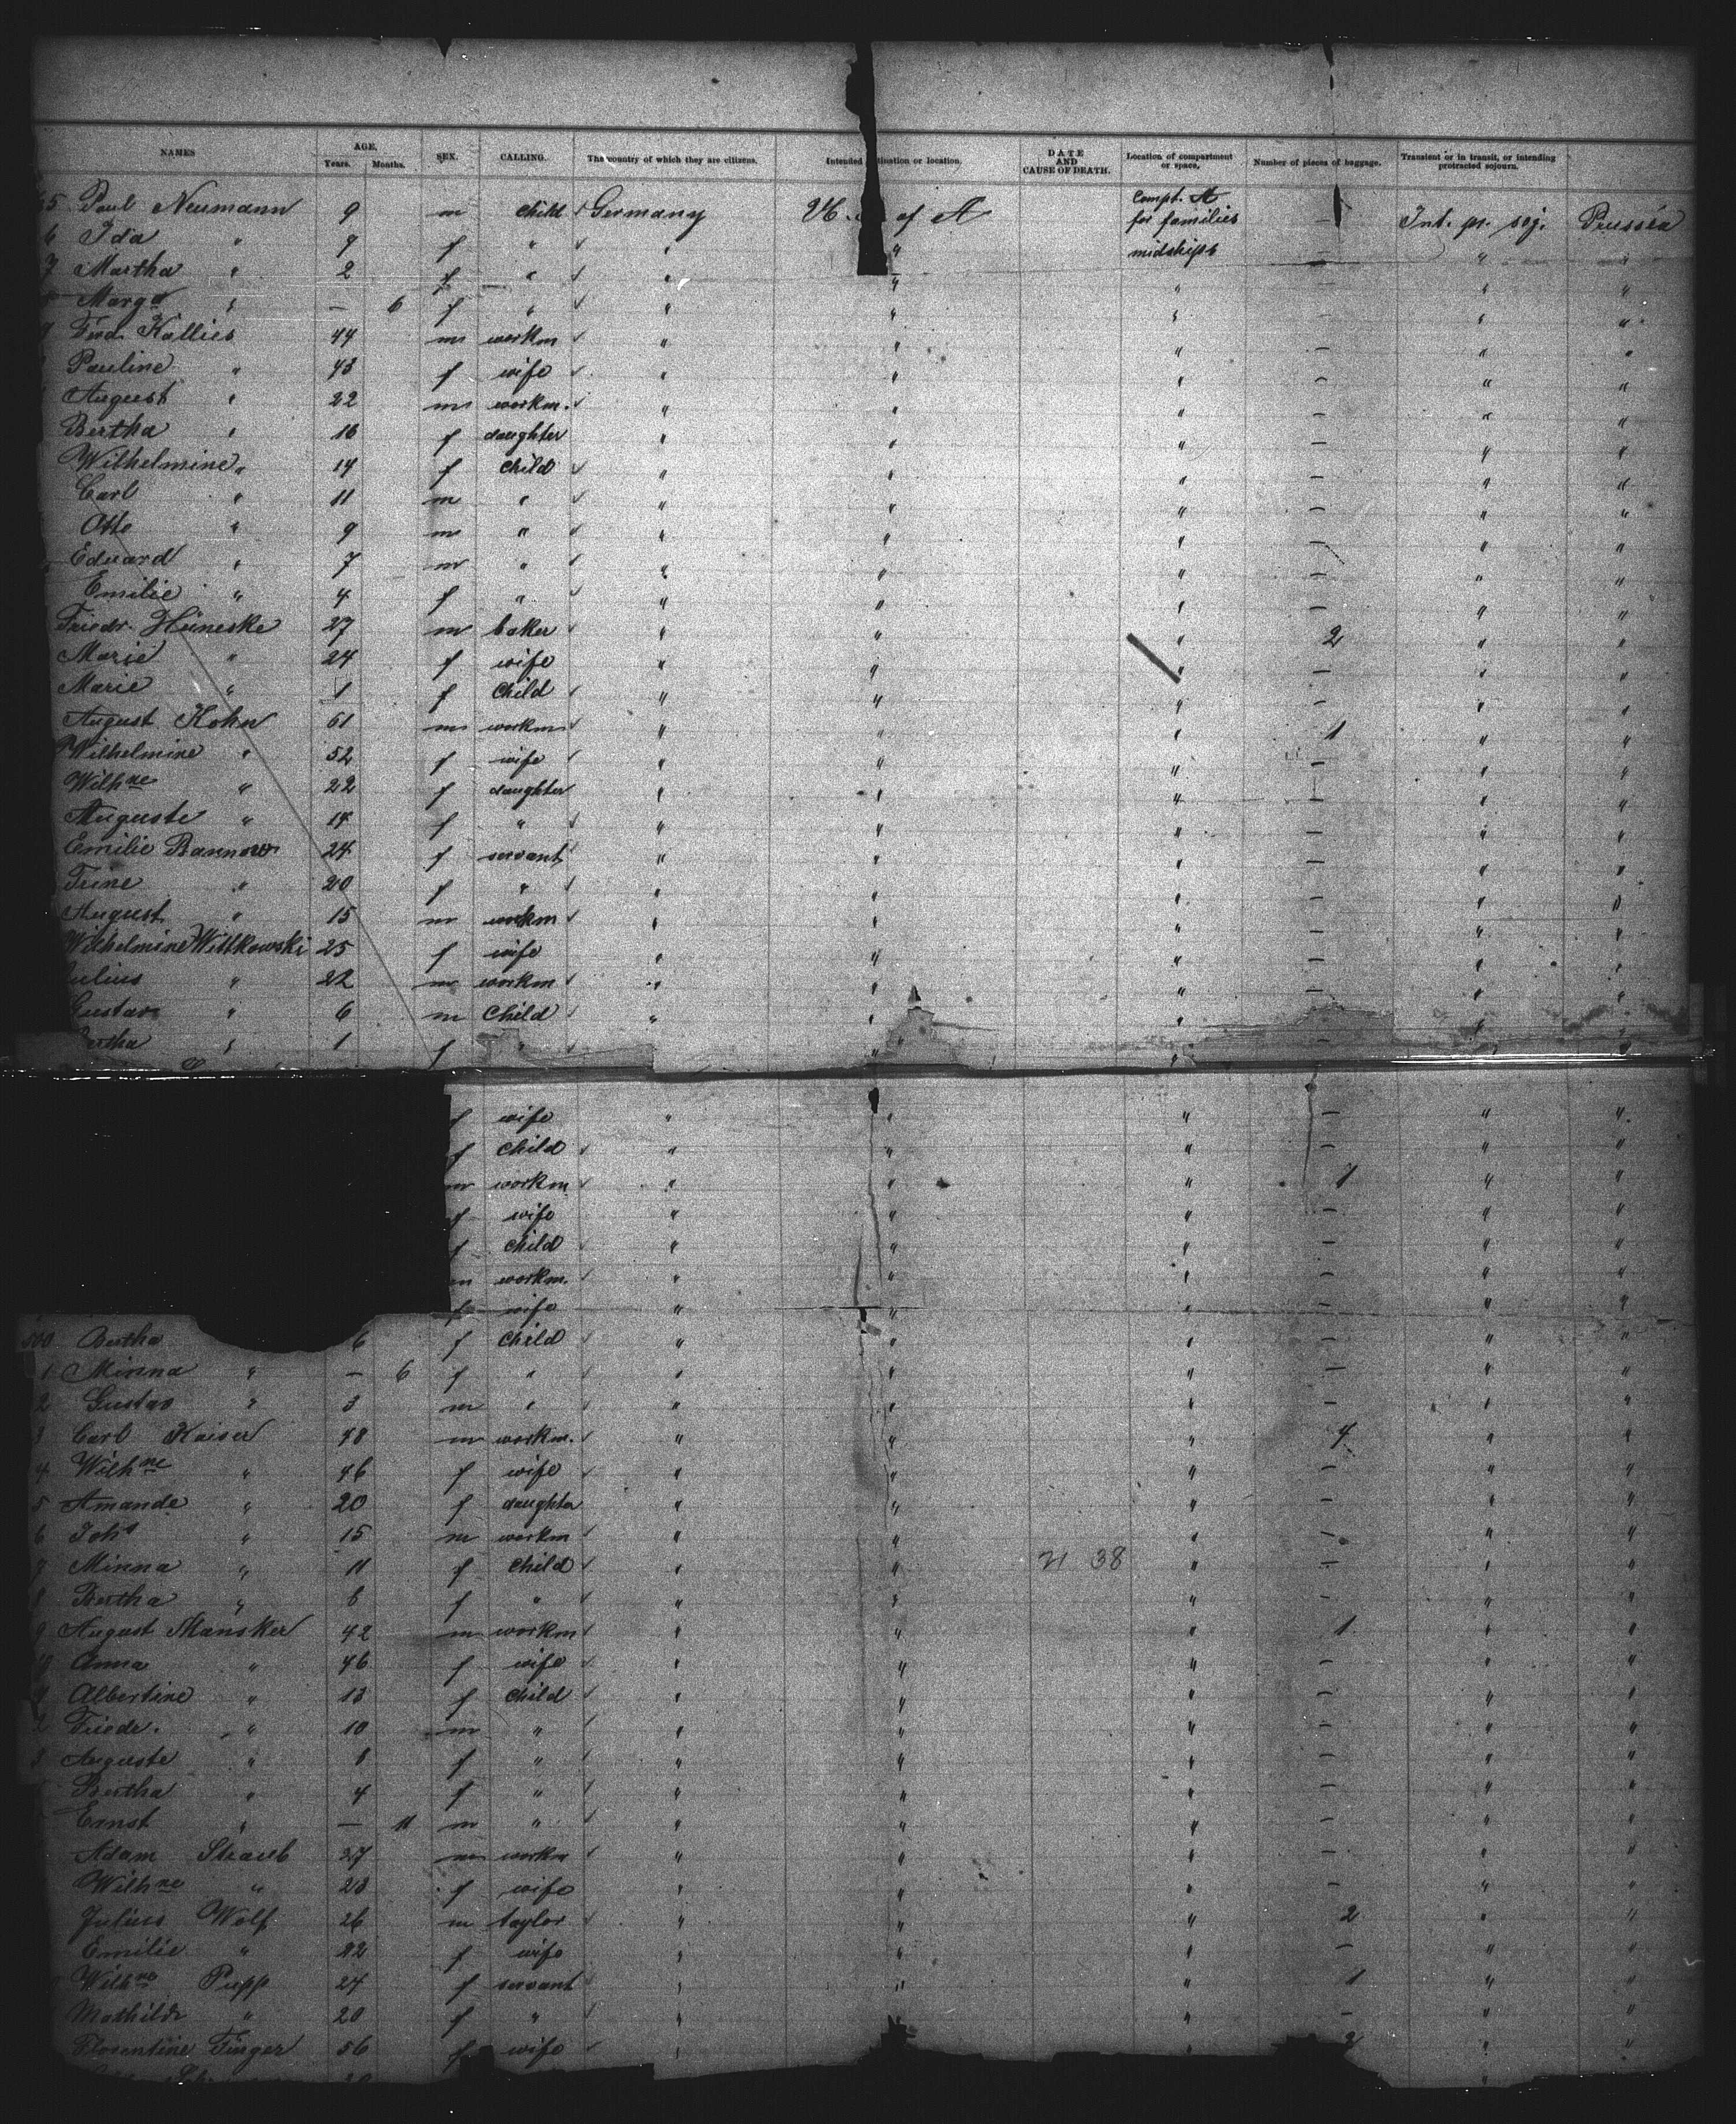 NAMES AGE, Years. Months. SEX. CALLING. The country of which they are citizens. Intended destination or location. DATE AND CAUSE OF DEATH. Location of compartment or space. Number of pieces of baggage. Transient or in transit, or intending protracted sojourn.
Paul Neumann 9 m child Germany of A Compt. A for families midships — Int. pr. soj. Prussia
6 Ida " f " " " — " "
7 Martha " 2 f " " " " — " "
" — 6 f " " " " " "
Ferd. Kallies 44 m workm " " " — " "
Pauline " 43 f wife " " " — " "
August " 22 m workm. " " " — " "
Bertha " 16 f daughter " " " — " "
Wilhelmine " 14 f child " " " — " "
Carl " 11 m " " " " — " "
Otto " 9 m " " " " — " "
Eduard " 7 m " " " " — " "
Emilie " 4 f " " " " — " "
Friedr. 27 m baker " " " 2 " "
Marie " 24 f wife " " " — " "
Marie " 1 f child " " " — " "
August Kohn 61 m workm " " " 1 " "
Wilhelmine " 52 f wife " " " — " "
Wilhne " 22 f daughter " " " — " "
Auguste " 14 f " " " " — " "
Emilie Bannow 24 f servant " " " — " "
20 f " " " " — " "
August " 15 m workm " " " — " "
Wilhelmine Wittkowski 25 f wife " " " — " "
" 22 m workm " " " — " "
Gustav " 6 m child " " " — " "
" 1 f " " " " — " "
f wife " " " — " "
f child " " " — " "
m workm " " " 1 " "
f wife " " " — " "
f child " " " — " "
m workm. " " " — " "
f wife " " " — " "
500 Bertha 6 f child " " " — " "
1 Minna " — 6 f " " " " — " "
2 Gustav " 3 m " " " " — " "
3 Carl Kaiser 48 m workm. " " " 4 " "
4 Wilhne " 46 f wife " " " — " "
5 Amande " 20 f daughter " " " — " "
6 Johs " 15 m workm " " " — " "
7 Minna " 11 f child " " 21 38 " — " "
8 Bertha " f " " " " — " "
9 August Mansker 42 m workm " " " 1 " "
10 Anna " 46 f wife " " " — " "
Albertine " 13 f child " " " — " "
2 Friedr. " 10 m " " " " — " "
3 Auguste " 8 f " " " " — " "
Bertha " 4 f " " " " — " "
Ernst " — 11 m " " " " — " "
Adam Straub 27 m workm " " " — " "
Wilhne " 23 f wife " " " — " "
Julius Wolf 26 m taylor " " " 2 " "
Emilie " 22 f wife " " " — " "
Wilhne Pupp 24 f servant " " " 1 " "
Mathilde " 20 f " " " " — " "
Florentine 56 f wife " " 2 " "